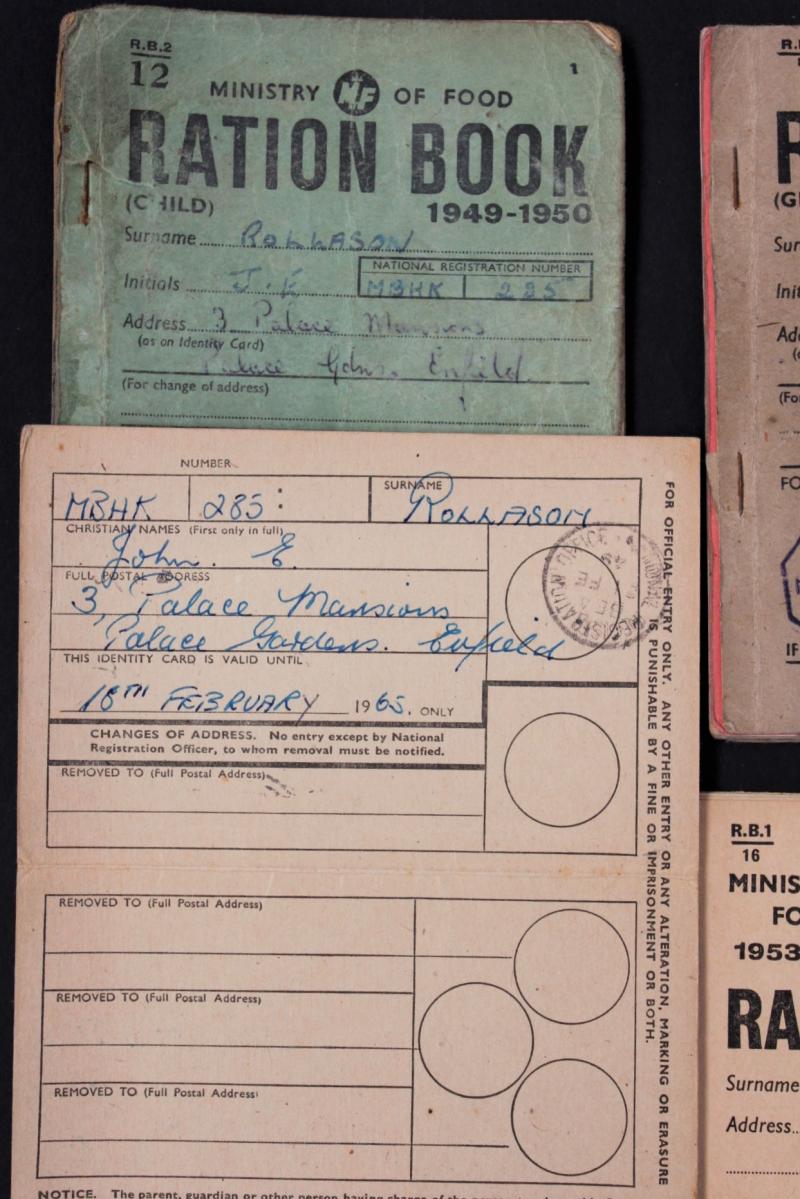 R.B.2
12
1
MINISTRY MF OF FOOD
RATION BOOK
(CHILD)
1949-1950
Surname ROLLASON
NATIONAL REGISTRATION NUMBER
Initials J. E MBHK 285
Address 3 Palace Mansions
(as on Identity Card)
Palace Gdns. Enfield.
(For change of address)
NUMBER
MBHK 285 :
SURNAME
ROLLASON
CHRISTIAN NAMES (First only in full)
John. E.
FULL POSTAL ADDRESS
3, Palace Mansions
Palace Gardens. Enfield
THIS IDENTITY CARD IS VALID UNTIL
18TH FEBRUARY 1965. ONLY
CHANGES OF ADDRESS. No entry except by National
Registration Officer, to whom removal must be notified.
REMOVED TO (Full Postal Address)
REMOVED TO (Full Postal Address)
REMOVED TO (Full Postal Address)
REMOVED TO (Full Postal Address)
NOTICE. The parent, guardian or other person having charge of the
FOR OFFICIAL ENTRY ONLY. ANY OTHER ENTRY OR ANY ALTERATION, MARKING OR ERASURE
IS PUNISHABLE BY A FINE OR IMPRISONMENT OR BOTH.
R.
R
(G
Sur
Init
Ad
(
(Fo
FO
IF
R.B.1
16
MINIS
FO
1953
RA
Surname
Address